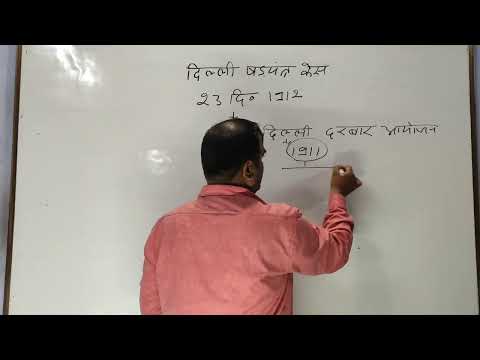 दिल्ली षडयंत्र केस
23 दि० 1912
दिल्ली दरबार आयोजन
1911